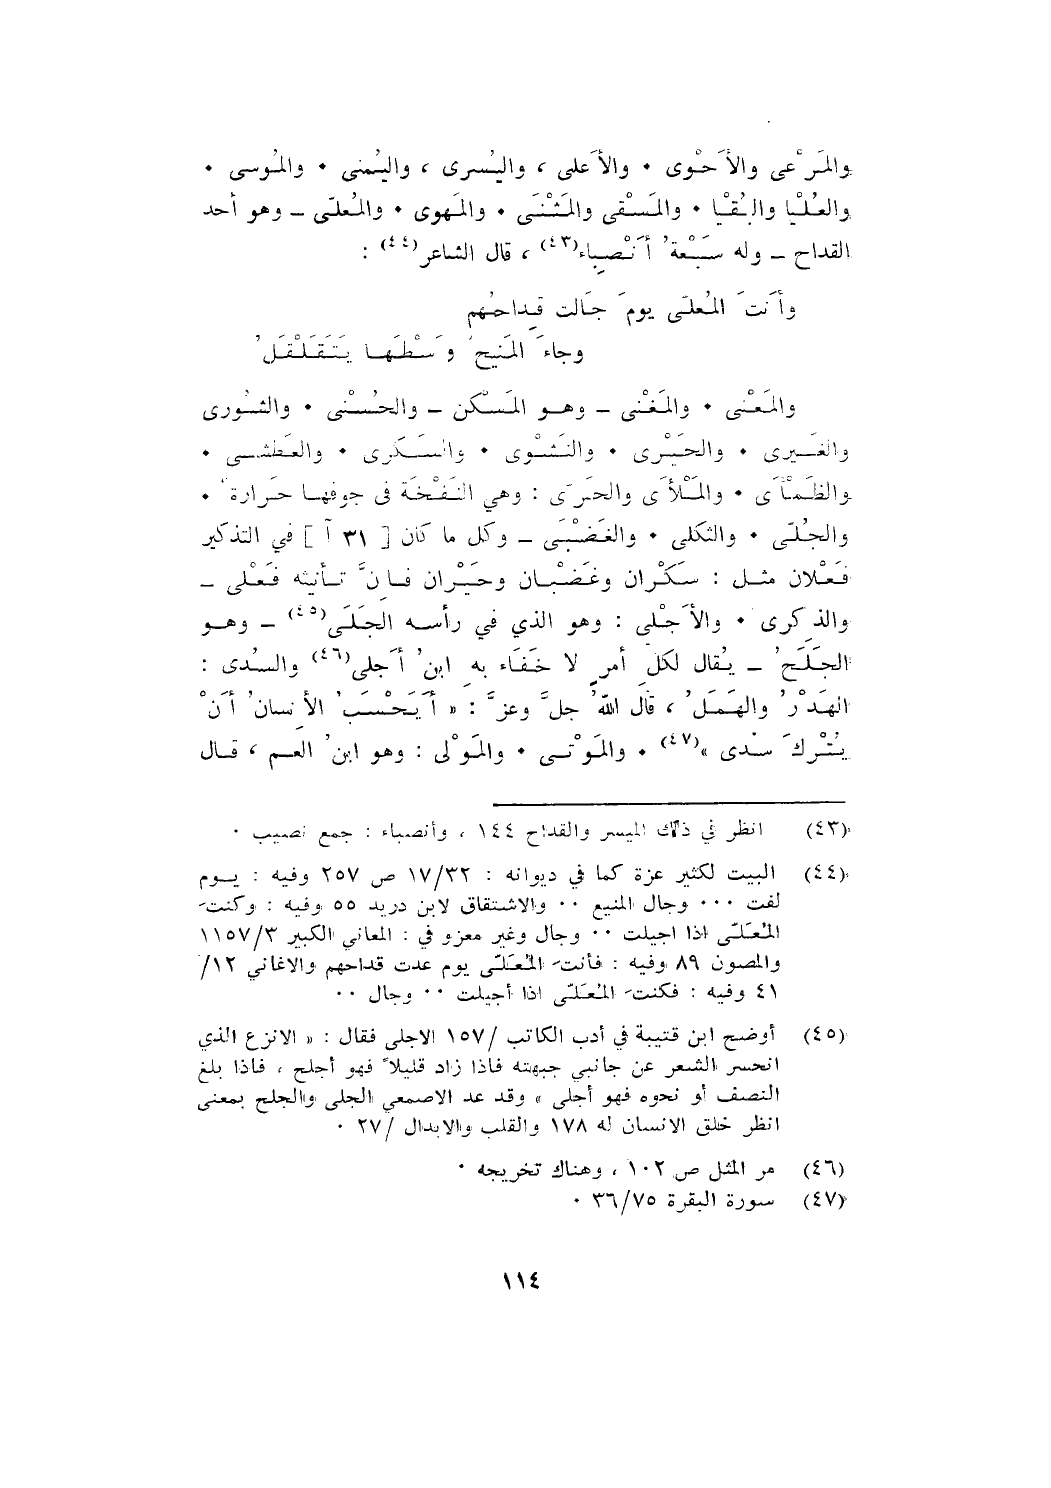 والمَرْعى والأَحْوى • والأَعلى ، واليُسرى ، واليُمنى • والمُوسى •
والعُلْيا والبُقْيا • والمَسْقى والمَثْنَى • والمَهوى • والمُعلّى ــ وهو أحد
القداح ــ وله سَبْعة' أَنْصِباء(٤٣) ، قال الشاعر(٤٤) :
وأَنتَ المُعلّى يومَ جَالت قِداحُهم
وجاءَ المَنيحُ وَسْطَها يَتَقَلْقَلُ
والمَعْنى • والمَغْنى ــ وهو المَسْكن ــ والحُسْنى • والشُورى
والغَيرى • والحَيْرى • والنَشْوى • والسَكرى • والعَطشى •
والظَمْأى • والمَلْأى والحَرّى : وهي النَفْخة في جوفها حَرارة' •
والجُلّى • والثكلى • والغَضْبَى ــ وكل ما كان [ ٣١ آ ] في التذكير
فَعْلان مثل : سَكْران وغَضْبان وحَيْران فانَّ تأنيثه فَعْلى ــ
والذِكرى • والأَجْلى : وهو الذي في رأسه الجَلَى(٤٥) ــ وهو
الجَلَحُ ــ يُقال لكلِ أمرٍ لا خَفَاء به ِ ابنُ أَجلى(٤٦) والسُدى :
الهَدْرُ والهَمَلُ ، قال اللّهُ جلَّ وعزَّ : « أَيَحْسَبُ الأِنسانُ أَنْ
يُتْركَ سُدى »(٤٧) • والمَوْتى • والمَوْلى : وهو ابنُ العم ، قال
(٤٣) انظر في ذلك الميسر والقداح ١٤٤ ، وأنصباء : جمع نصيب •
(٤٤) البيت لكثير عزة كما في ديوانه : ١٧/٣٢ ص ٢٥٧ وفيه : يوم
لفت ••• وجال المنيع •• والاشتقاق لابن دريد ٥٥ وفيه : وكنتَ
المُعَلّى اذا اجيلت •• وجال وغير معزو في : المعاني الكبير ١١٥٧/٣
والمصون ٨٩ وفيه : فأنتَ المُعَلّى يوم عدت قداحهم والاغاني ١٢/
٤١ وفيه : فكنتَ المُعَلّى اذا أجيلت •• وجال ••
(٤٥) أوضح ابن قتيبة في أدب الكاتب /١٥٧ الاجلى فقال : « الانزع الذي
انحسر الشعر عن جانبي جبهته فاذا زاد قليلاً فهو أجلح ، فاذا بلغ
النصف أو نحوه فهو أجلى » وقد عد الاصمعي الجلى والجلح بمعنى
انظر خلق الانسان له ١٧٨ والقلب والابدال /٢٧ •
(٤٦) مر المثل ص ١٠٢ ، وهناك تخريجه •
(٤٧) سورة البقرة ٣٦/٧٥ •
١١٤